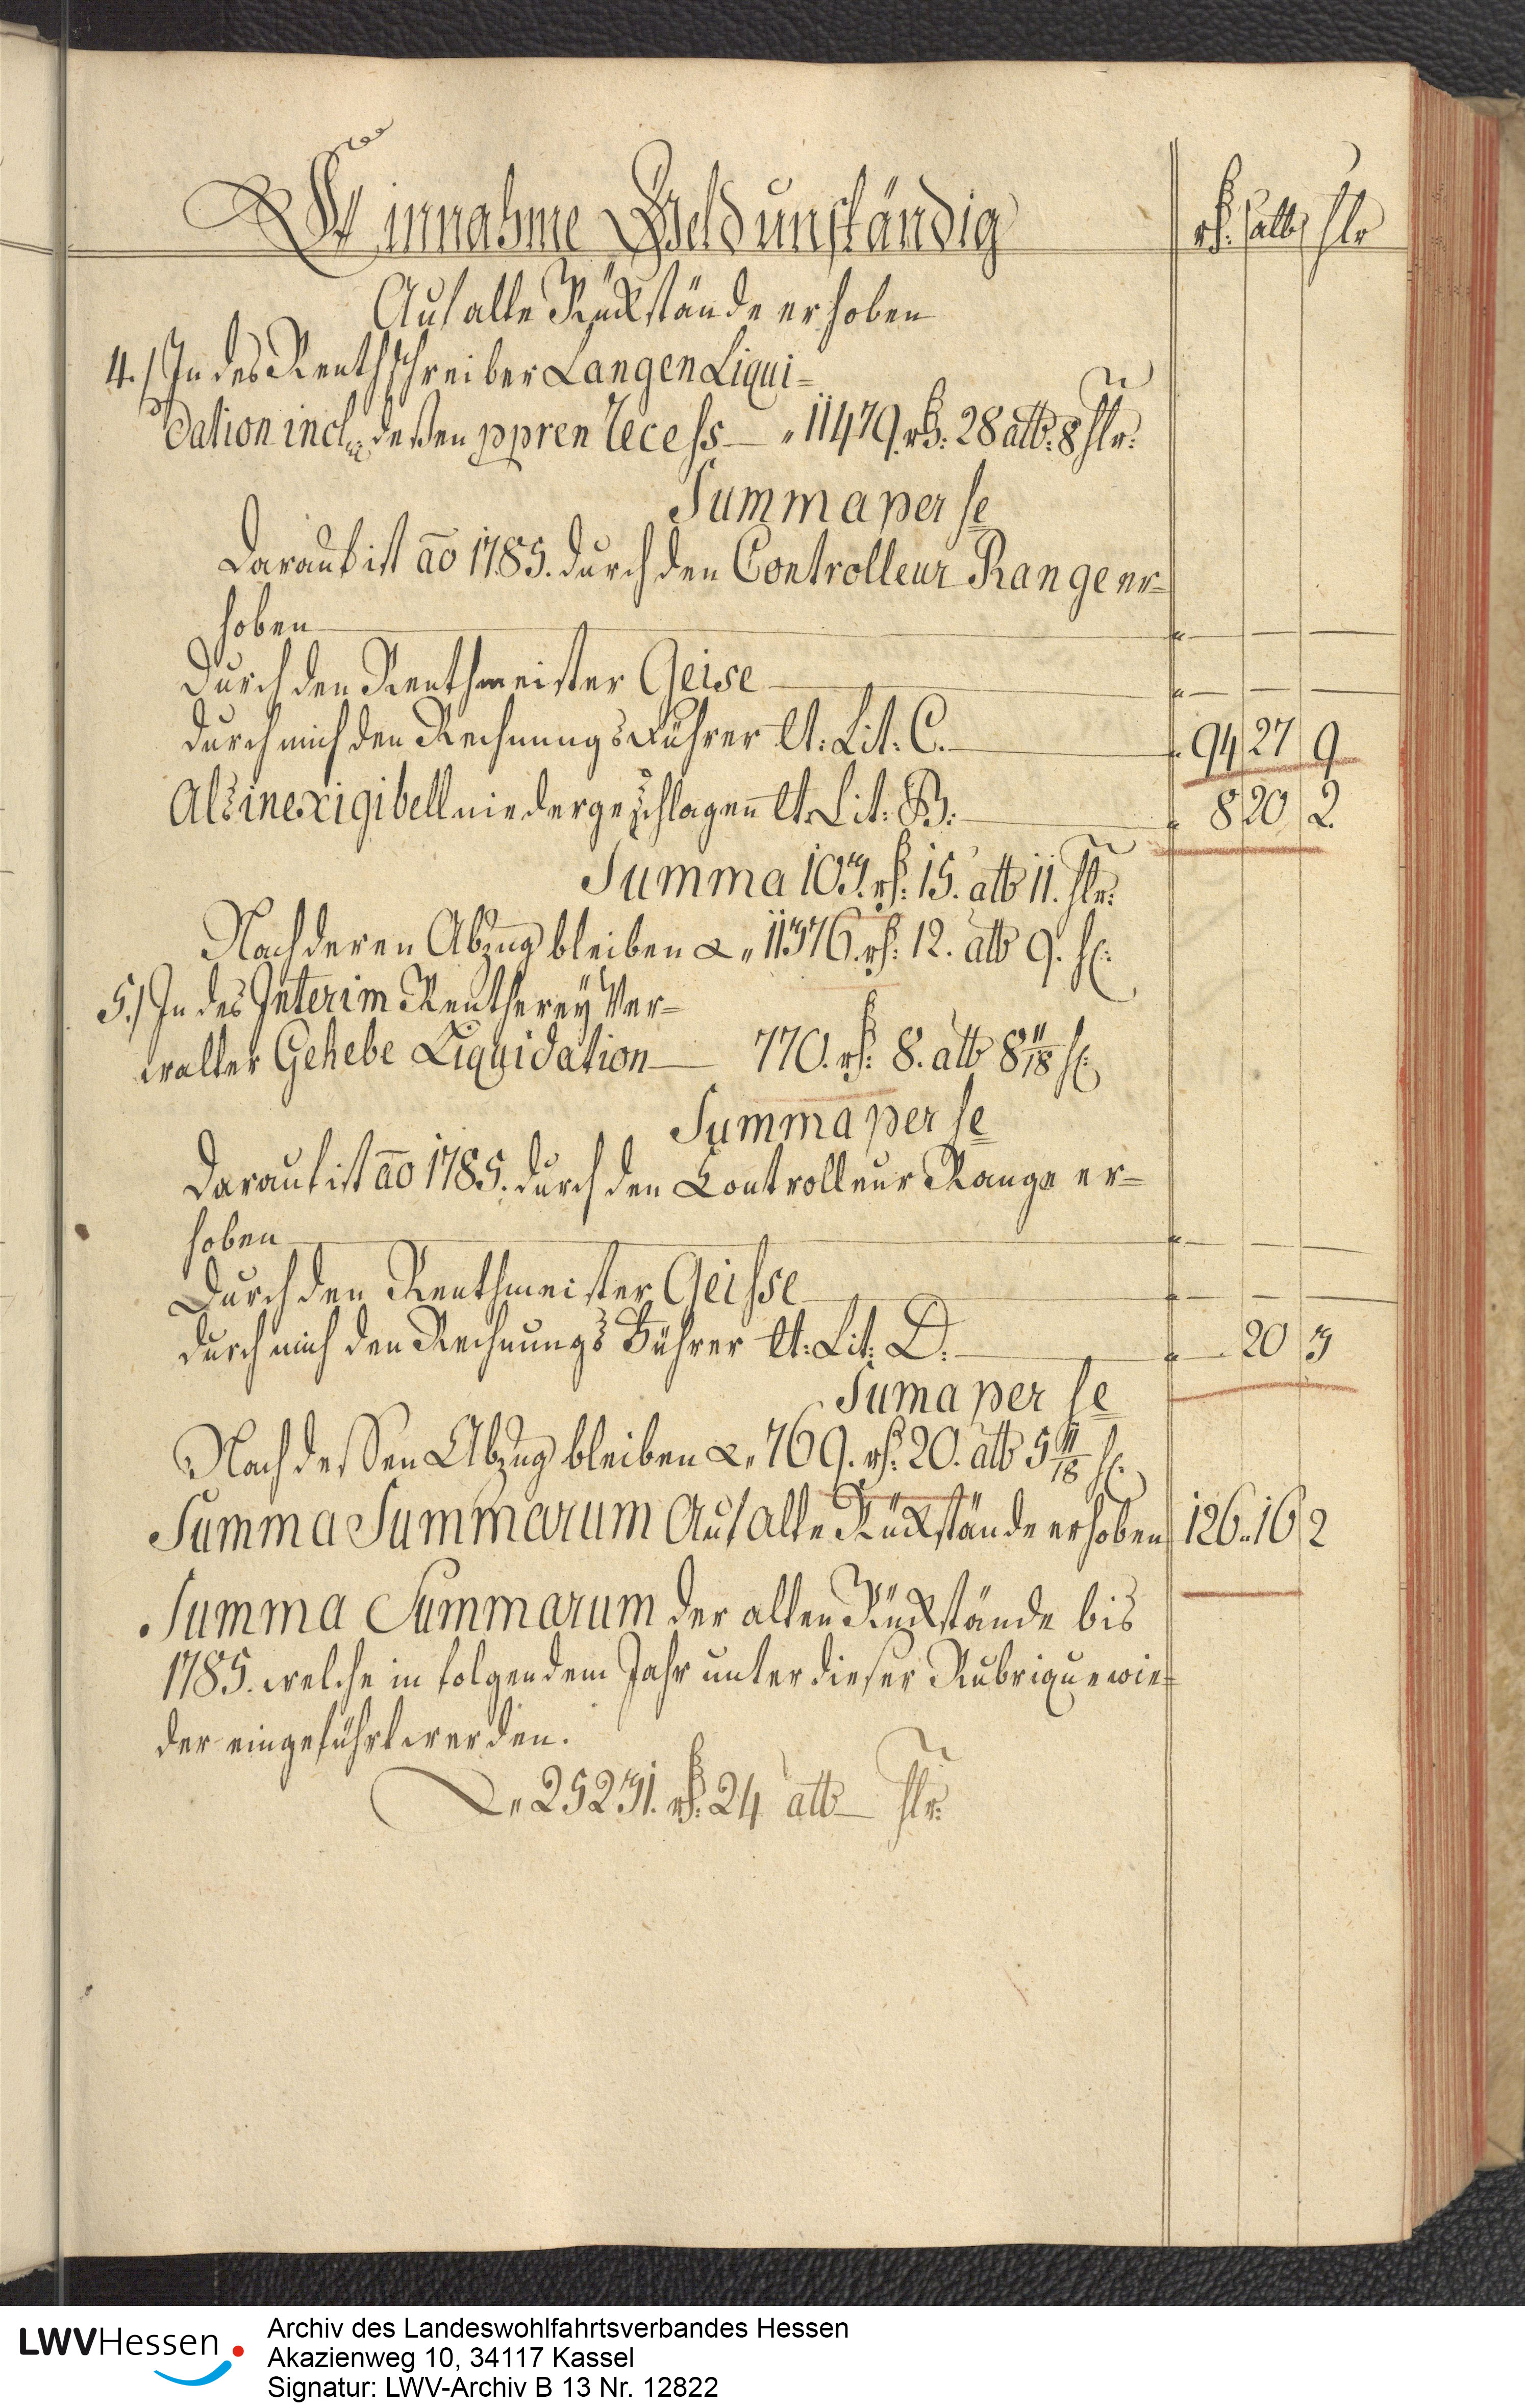 Einnahme Geld unständig
rth: alb hlr
Auf alte Rückstände erhoben
4.) In des Renthschreiber Langen Liqui=
dation incl: deßen ppren Recess — " 11479. rth: 28 alb: 8 hlr:
Summa per se
Darauf ist ao 1785. durch den Controlleur Range er=
hoben — " — — —
Durch den Renthmeister Geise — " — — —
durch mich den Rechnungs Führer lt: Lit: C. — " 94 27 9
Als inexigibell niedergeschlagen lt. Lit: B: — " 8 20 2
Summa 103. rth: 15. alb 11. hlr:
Nach deren Abzug bleiben " 11376. rth: 12. alb 9. hl:
5.) In des Interim Rentherey Ver=
walter Gehebe Liquidation — 770. rth: 8. alb 8 11/18 hl:
Summa per se
Darauf ist ao 1785. durch den Controlleur Range er=
hoben — " — — —
Durch den Renthmeister Geisse — " — — —
durch mich den Rechnungs Führer lt: Lit: D: — " — 20 3
Suma per se
Nach deßen Abzug bleiben " 769. rth: 20. alb 5 11/18 hl:
Summa Summarum Auf alte Rückstände erhoben 126 " 16 2
Summa Summarum der alten Rückstände bis
1785. welche in folgendem Jahr unter dieser Rubrique wie=
der eingeführt werden.
" 25231. rth: 24 alb — hlr:
LWVHessen
Archiv des Landeswohlfahrtsverbandes Hessen
Akazienweg 10, 34117 Kassel
Signatur: LWV-Archiv B 13 Nr. 12822